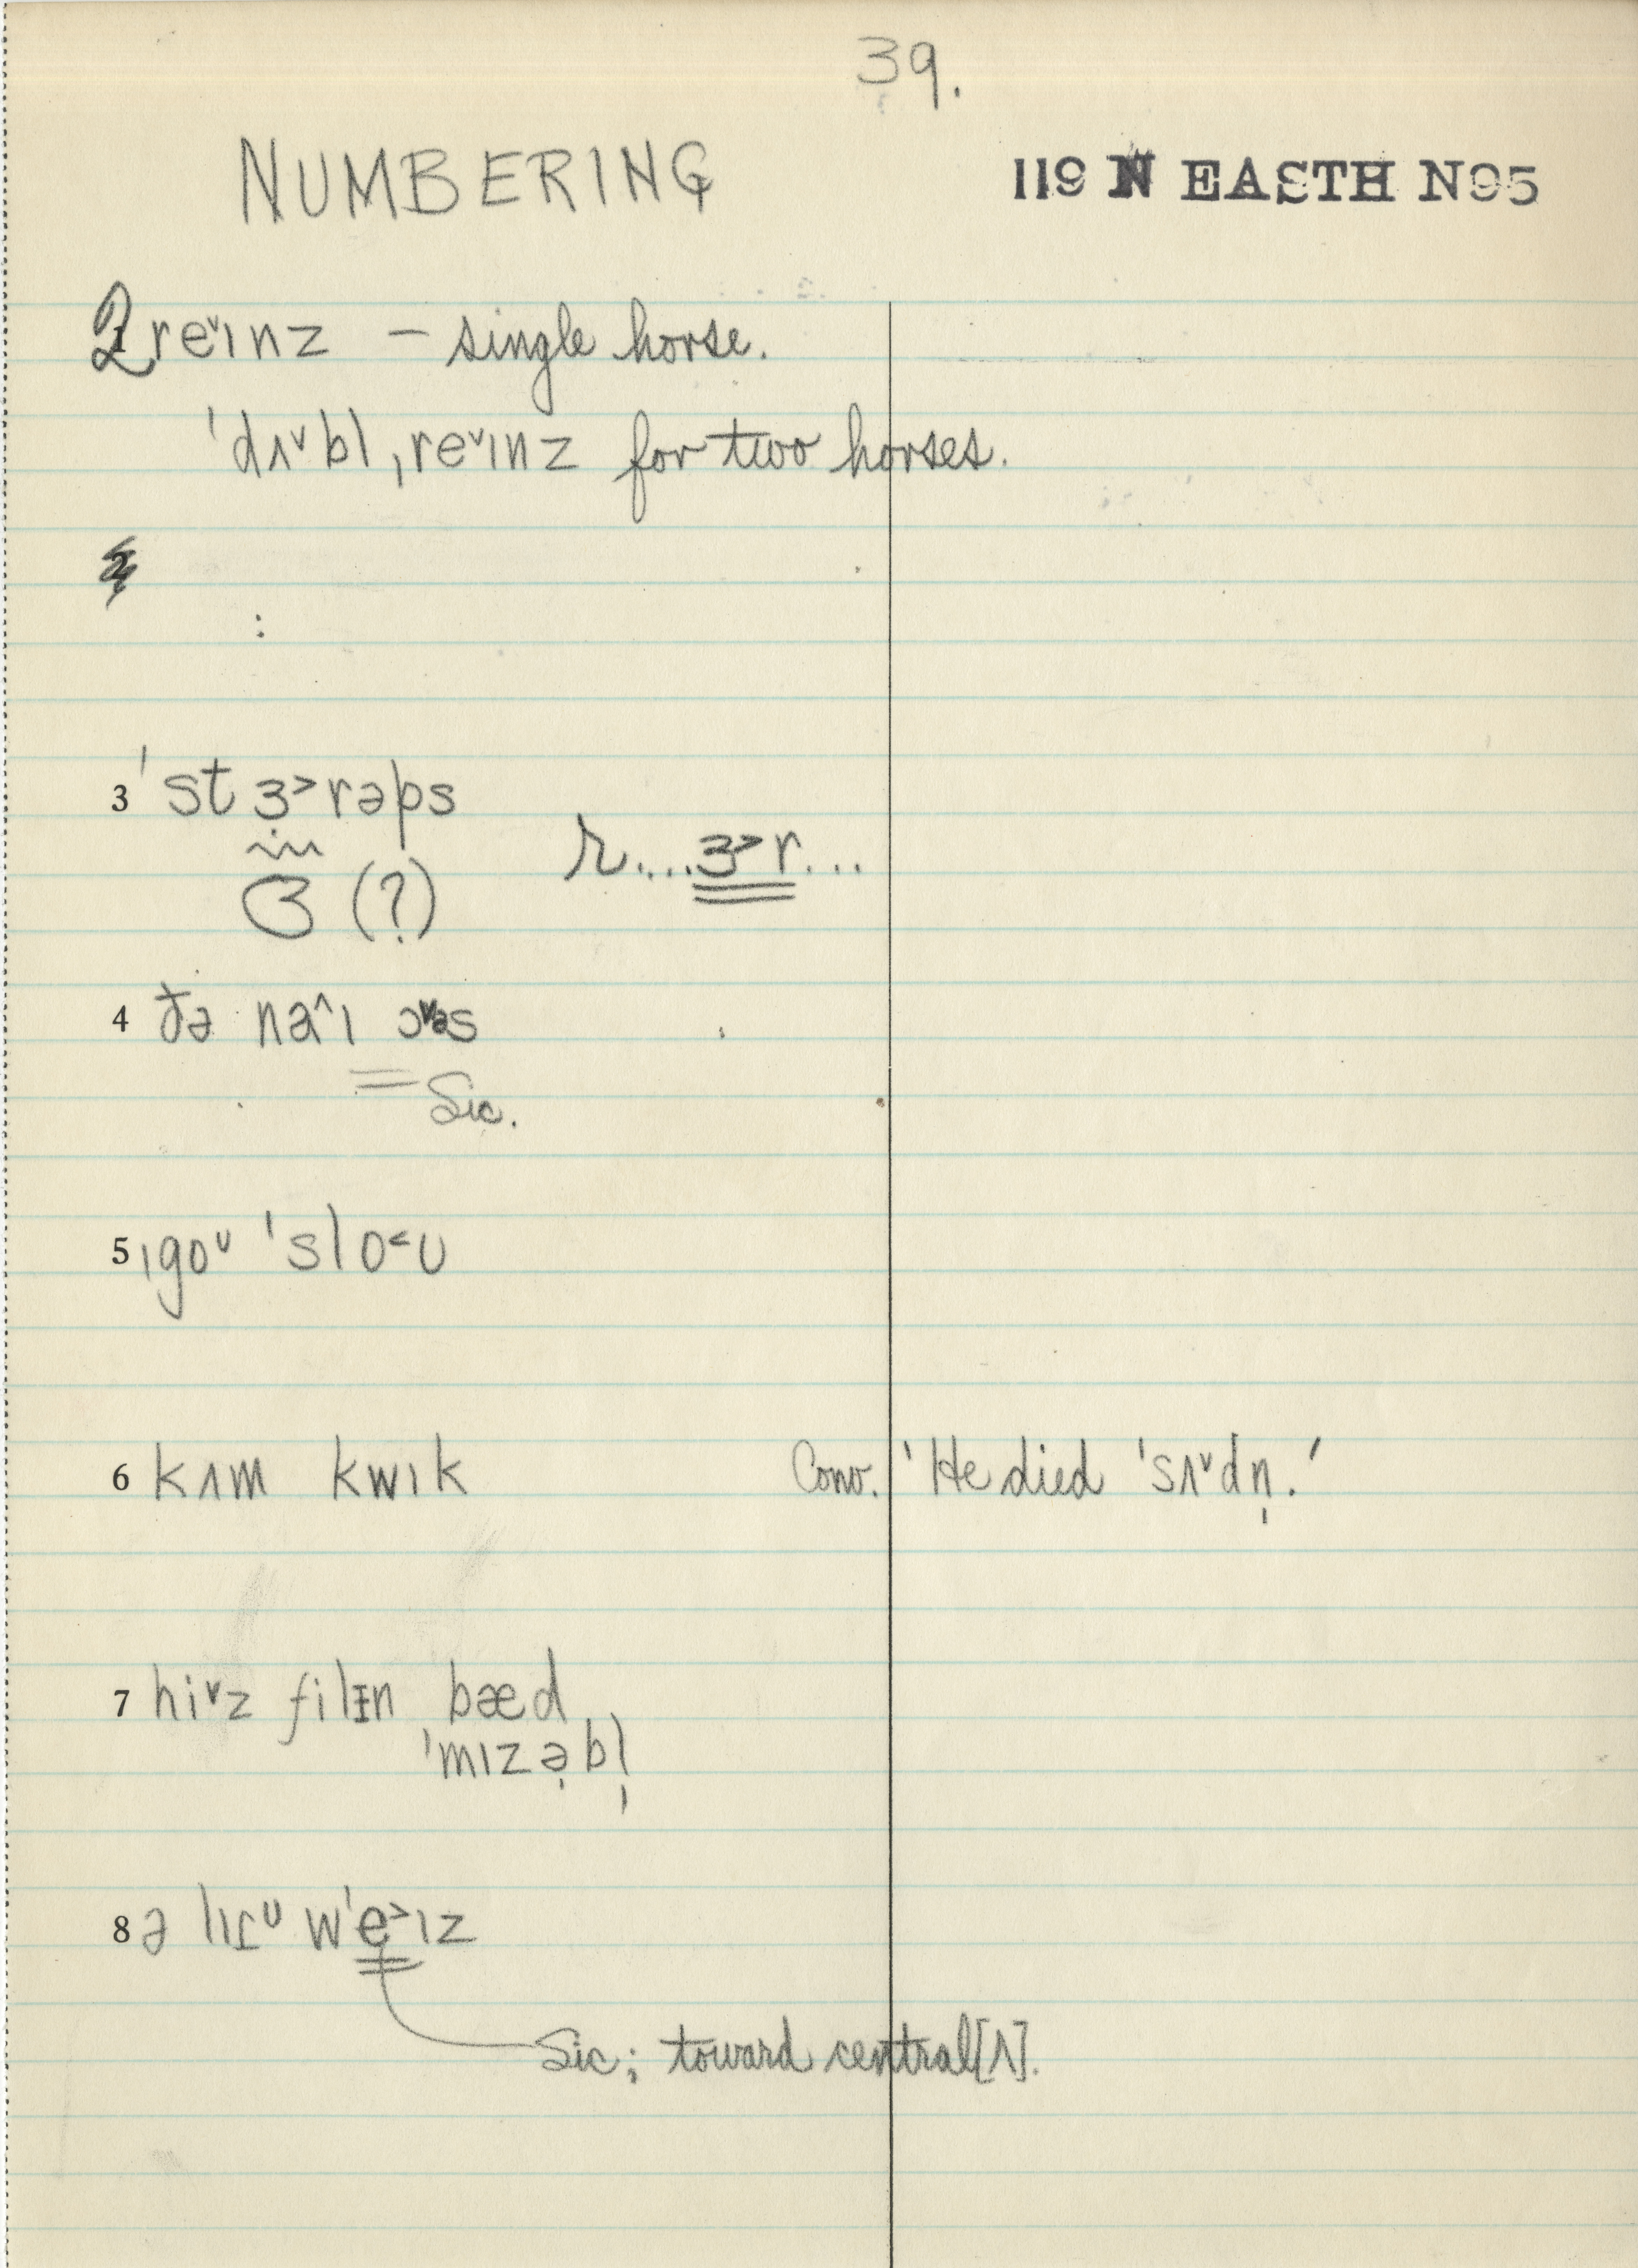 39.
NUMBERING
119 N EASTH N95
2 reˇınz – single horse.
ˈdʌˇbl ˌreˇınz for two horses.
2
3 ˈstɜ˃rəps
ɜ (?) r....ɜ˃r...
4 ðə naˆı ɔˇəs
Sic.
5 ˌgoᶷ ˈslo˂ʊ
6 kʌm kwık Conv. 'He died ˈsʌˇdn̩.'
7 hiˇz filɪn bæd
ˈmızə̣bl̩
8 ə lıɾᶷ wˈe˃ız
Sic; toward central [ʌ].